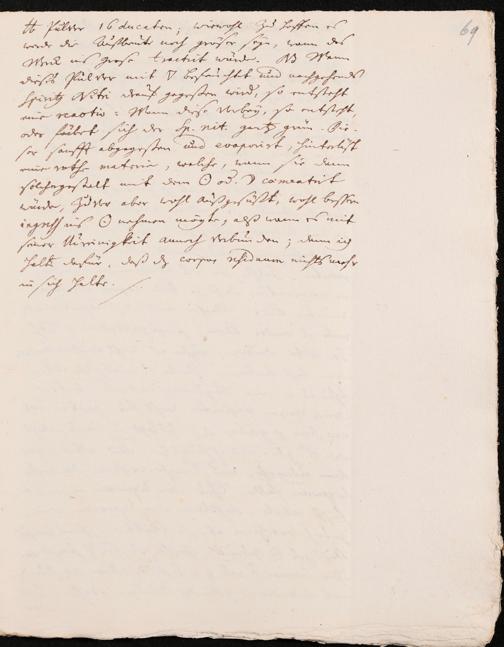 69
℔ Pulver 16 ducaten; wiewohl zu hoffen es
werde die Außbeute noch größer seyn, wann das
Werck ins große tractirt würde. NB Wann
dieses Pulver mit 🜄 befeuchtet und nachgehends
Spirit9 Nitri drauf gegoßen wird, so entsteht
eine reactio: Wann diese vorbey, so entsteht,
oder färbet sich der Sp. nit. gantz grün. Die-
ser sanfft abgegoßen und evaporirt, hinterläst
eine rothe materie, welche, wann sie dann
solchergestalt mit dem ☉ od. ☽ caementirt
würde, zuvor aber wohl außgesüßt, wohl beßern
ingreß ins ☉ nehmen mögte; alß wann es mit
seiner Unreinigkeit annoch verbunden; dann ich
halte dafür, daß dz corpus nichts mehr
in sich halte.